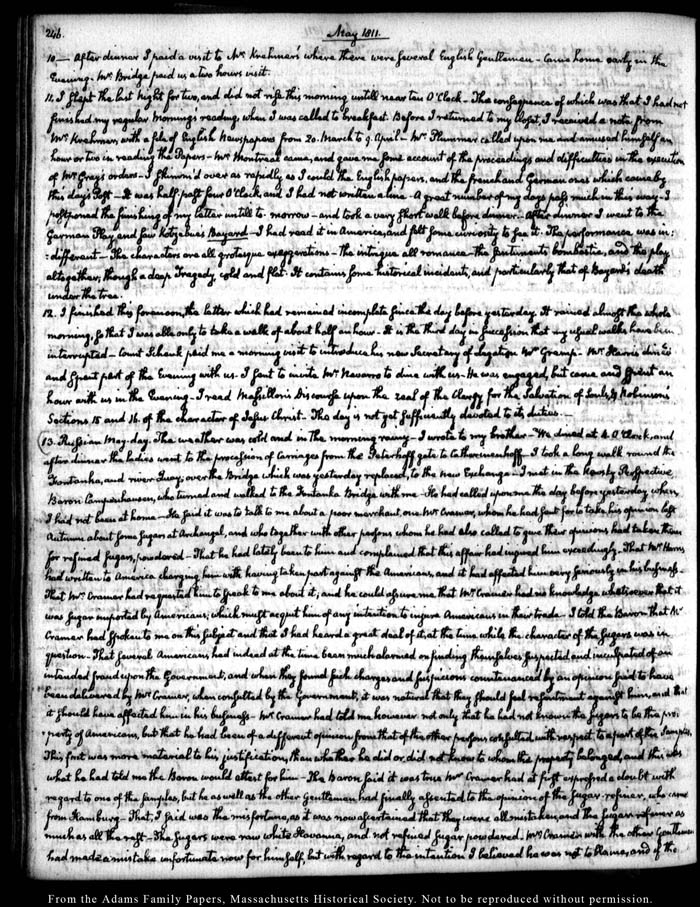 246.
May 1811.
10.— After dinner I paid a visit to Mr. Krehmer's where there were several English Gentlemen – Came home early in the
Evening. Mr. Bridge paid us a two hours visit.
11. I slept the last night for two, and did not rise this morning untill near ten O'Clock – The consequence of which was that I had not
finished my regular mornings reading, when I was called to breakfast. Before I returned to my closet, I received a note from
Mr. Krehmer with a file of English Newspapers from 20. March to 9. April – Mr. Plummer called upon me and amused himself an
hour or two in reading the Papers – Mr. Montreal came, and gave me some account of the proceedings and difficulties in the execution
of Mr. Gray's orders – I skimm'd over as rapidly as I could the English papers, and the french and German ones which came by
this day's Post – It was half past four O'Clock, and I had not written a line – A great number of my days pass much in this way – I
postponed the finishing of my letter untill to-morrow – and took a very short walk before dinner – After dinner I went to the
German Play, and saw Kotzebue's Bayard – I had read it in America, and felt some curiosity to see it. The performance was in:
:different – The characters are all grotesque exaggerations – the intrigue all romance – the sentiments bombastic, and the play
altogether, though a deep Tragedy, cold and flat. It contains some historical incidents, and particularly that of Bayard's death
under the tree.
12. I finished this forenoon, the letter which had remained incomplete since the day before yesterday. It rained almost the whole
morning, so that I was able only to take a walk of about half an hour – It is the third day in succession that my usual walks have been
interrupted – Count Schenk paid me a morning visit to introduce his new Secretary of Legation Mr. Gremp – Mr. Harris dined
and spent part of the Evening with us. I sent to invite Mr. Navarro to dine with us – He was engaged, but came and spent an
hour with us in the Evening – I read Massillon's Discourse upon the zeal of the Clergy for the Salvation of Souls, & Robinson's
Sections 15 and 16. of the character of Jesus Christ – The day is not yet sufficiently devoted to its duties.—
13. Russian May-day. The weather was cold and in the morning rainy – I wrote to my brother – We dined at 4 O'Clock, and
after dinner the ladies went to the procession of carriages from the Peterhoff gate to Catherinenhoff. I took a long walk round the
Fontanka, and river Quay, over the Bridge which was yesterday replaced, to the new Exchange – I met in the Newsky Perspective
Baron Campenhausen, who turned and walked to the Fontanka Bridge with me – He had called upon me the day before yesterday when
I had not been at home – He said it was to talk to me about a poor merchant, one Mr. Cramer, whom he had sent for to take his opinion last
Autumn about some Sugars at Archangel, and who together with other persons whom he had also called to give their opinions had taken them
for refined Sugars, powdered – That he had lately been to him and complained that this affair had injured him exceedingly – That Mr. Harris
had written to America charging him with having taken part against the Americans, and it had affected him very seriously in his business –
That Mr. Cramer had requested him to speak to me about it, and he could assure me that Mr. Cramer had no knowledge whatsoever that it
was Sugar imported by Americans, which must acquit him of any intention to injure Americans in their trade – I told the Baron that Mr.
Cramer had spoken to me on this subject and that I had heard a great deal of it, at the time while the character of the Sugars was in
question. That several Americans had indeed at the time been much alarmed on finding themselves suspected and inculpated of an
intended fraud upon the Government, and when they found such charges and suspicions countenanced by an opinion said to have
been delivered by Mr. Cramer, when consulted by the Government, it was natural that they should feel resentment against him, and that
it should have affected him in his business – Mr. Cramer had told me however not only that he had not known the Sugars to be the pro:
:perty of Americans, but that he had been of a different opinion from that of the other persons consulted with respect to a part of the samples.
This fact was more material to his justification, than whether he did or did not know to whom the property belonged, and this was
what he had told me the Baron would attest for him – The Baron said it was true Mr. Cramer had at first expressed a doubt with
regard to one of the samples, but he as well as the other Gentlemen had finally assented to the opinion of the Sugar-refiner, who came
from Hamburg – That, I said was the misfortune, as it was now ascertained that they were all mistaken, and the Sugar refiner as
much as all the rest – The Sugars were raw white Havanna, and not refined Sugar powdered. Mr. Cramer with the other Gentlemen
had made a mistake unfortunate now for himself, but with regard to the intention I believed he was not to blame, and of the
From the Adams Family Papers, Massachusetts Historical Society. Not to be reproduced without permission.